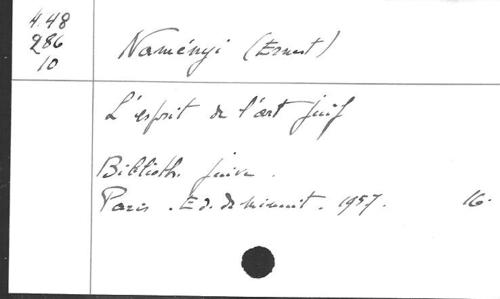 4.48
286
10
Naményi (Ernest)
L'esprit de l'art juif
Biblioth. juive.
Paris. Ed. de minuit. 1957. 16.